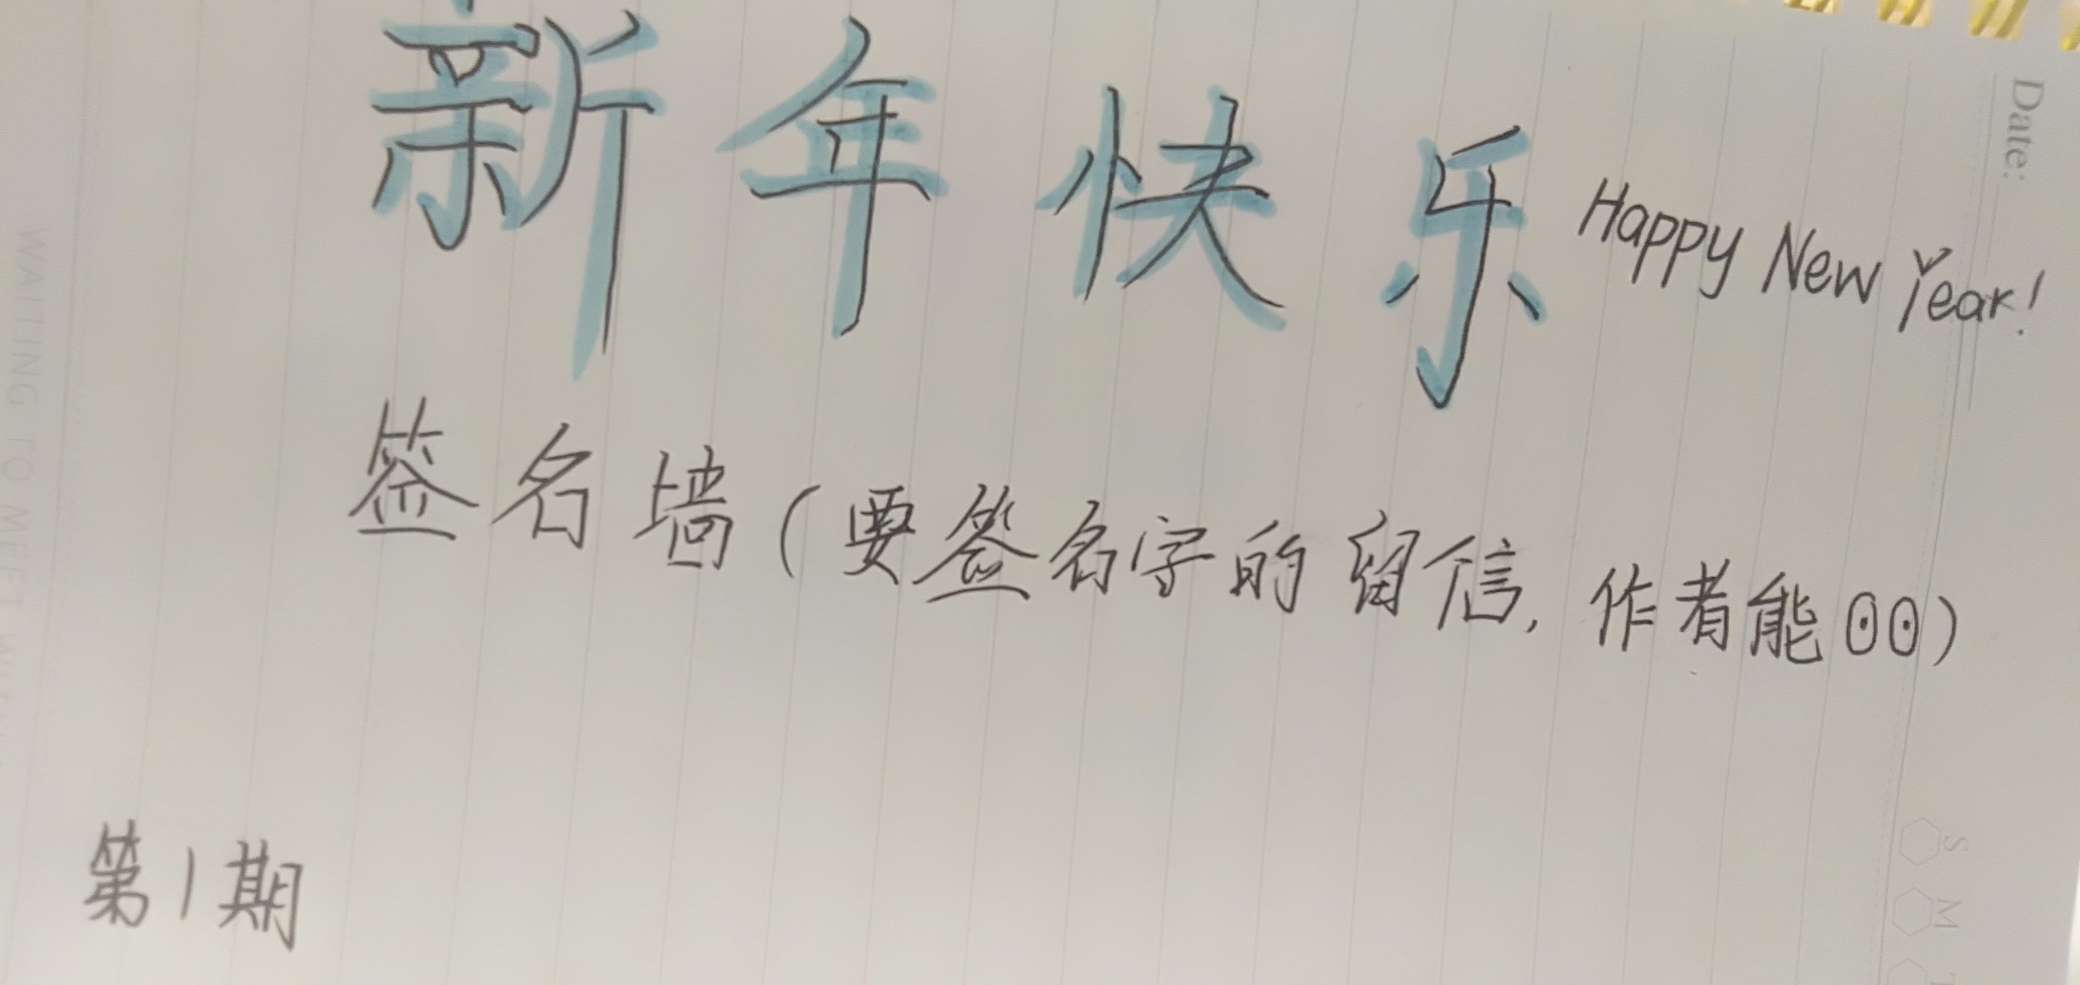 新年快乐 Happy New Year!
签名墙(要签名字的留信,作者能👀)
第1期
Date:
WAITING TO MEET
S
M